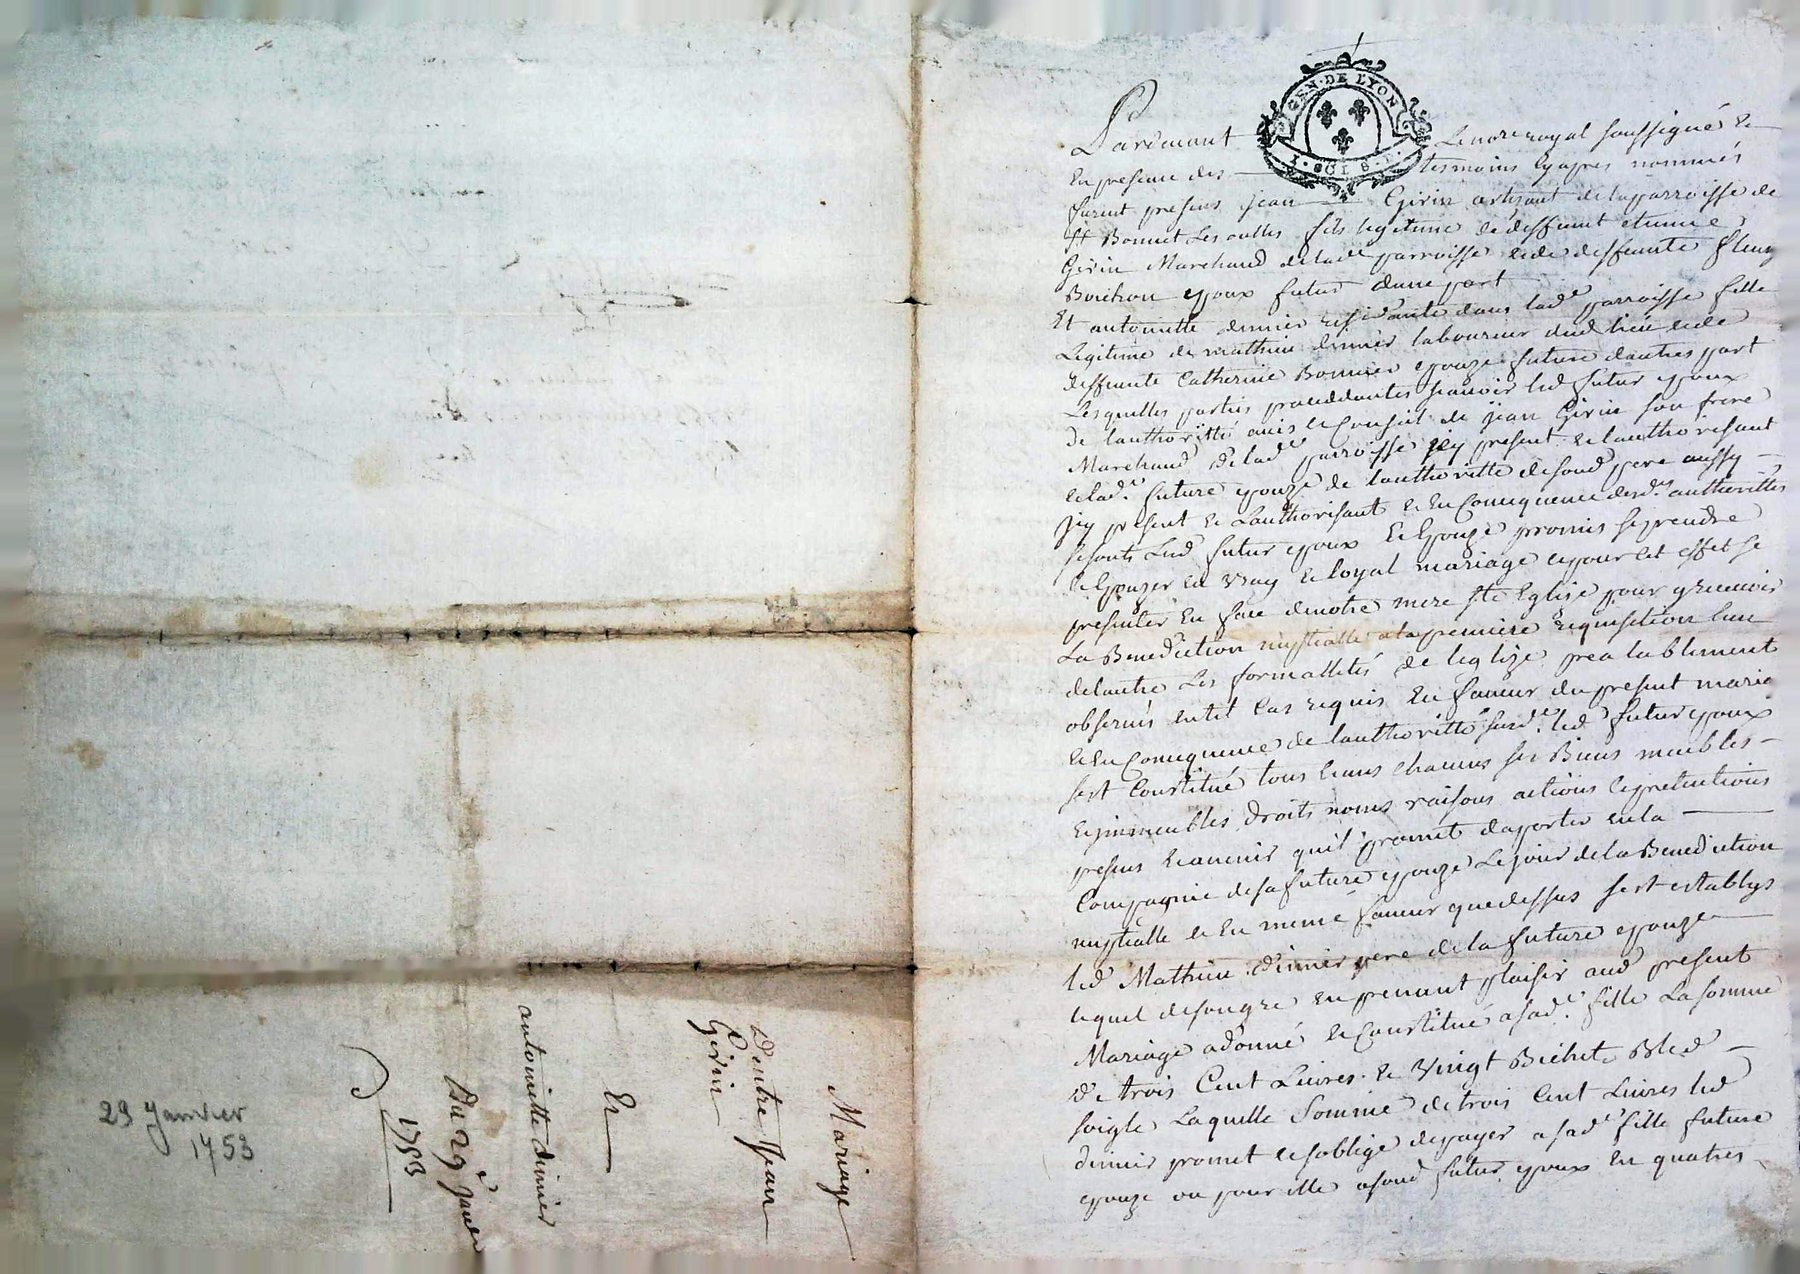 29 Janvier
1753
Mariage
Dentre Jean
Girin
Et
antoinette dimier
Du 29e Janvier
1753
GEN. DE LYON
Pardevant Le nore royal soussigné &
En presence des tesmoins cyapres nommés
furent presens jean Girin artisant de la parroisse de
St Bonnet Les oulles fils legitime de deffunt etienne
Girin Marchand de lade parroisse & de deffunte fleury
Bouchon epoux futur dune part
Et antoinette dimier residante dans lade parroisse fille
Legitime de mathieu dimier laboureur dud lieu & de
deffunte Catherine Bonnier epouze future dautres part
Lesquelles parties proceddantes scavoir led futur epoux
de lauthoritté avis & Conseil de jean Girin son frere
Marchand de lade parroisse jcy present & lauthorisant
& lade future epouze de lauthoritté de sond pere aussy
jcy present & Lauthorisant & En Consequence desdes authorittés
se sont Lesd futur epoux & Epouze promis se prendre
& Epouzer en vray & loyal mariage & pour cet effet se
presenter En face de notre mere Ste Eglise pour y recevoir
La Benediction nuptialle a la premiere requisition lun
de lautre Les formallités de leglize prealablement
observés en tel Cas requis En faveur du present maria
& En Consequence de lauthoritté susde led futur epoux
sest Constitué tous & uns chacuns ses Biens meubles
& jmmeubles droits noms raisons actions & pretentions
presens & avenir quil promet daporter en la
Compagnie de sa future epouze Le jour de la Benediction
nuptialle & En meme faveur que dessus sest establys
led Mathieu dimier pere de la future epouze
lequel de son gre en prenant plaisir aud present
Mariage adonné & Constitué a sade fille La somme
de trois Cent Livres & vingt Bichets Bled
soigle Laquelle Somme de trois Cent Livres led
dimier promet & soblige de payer a sade fille future
epouze ou pour elle a sond futur epoux En quatres